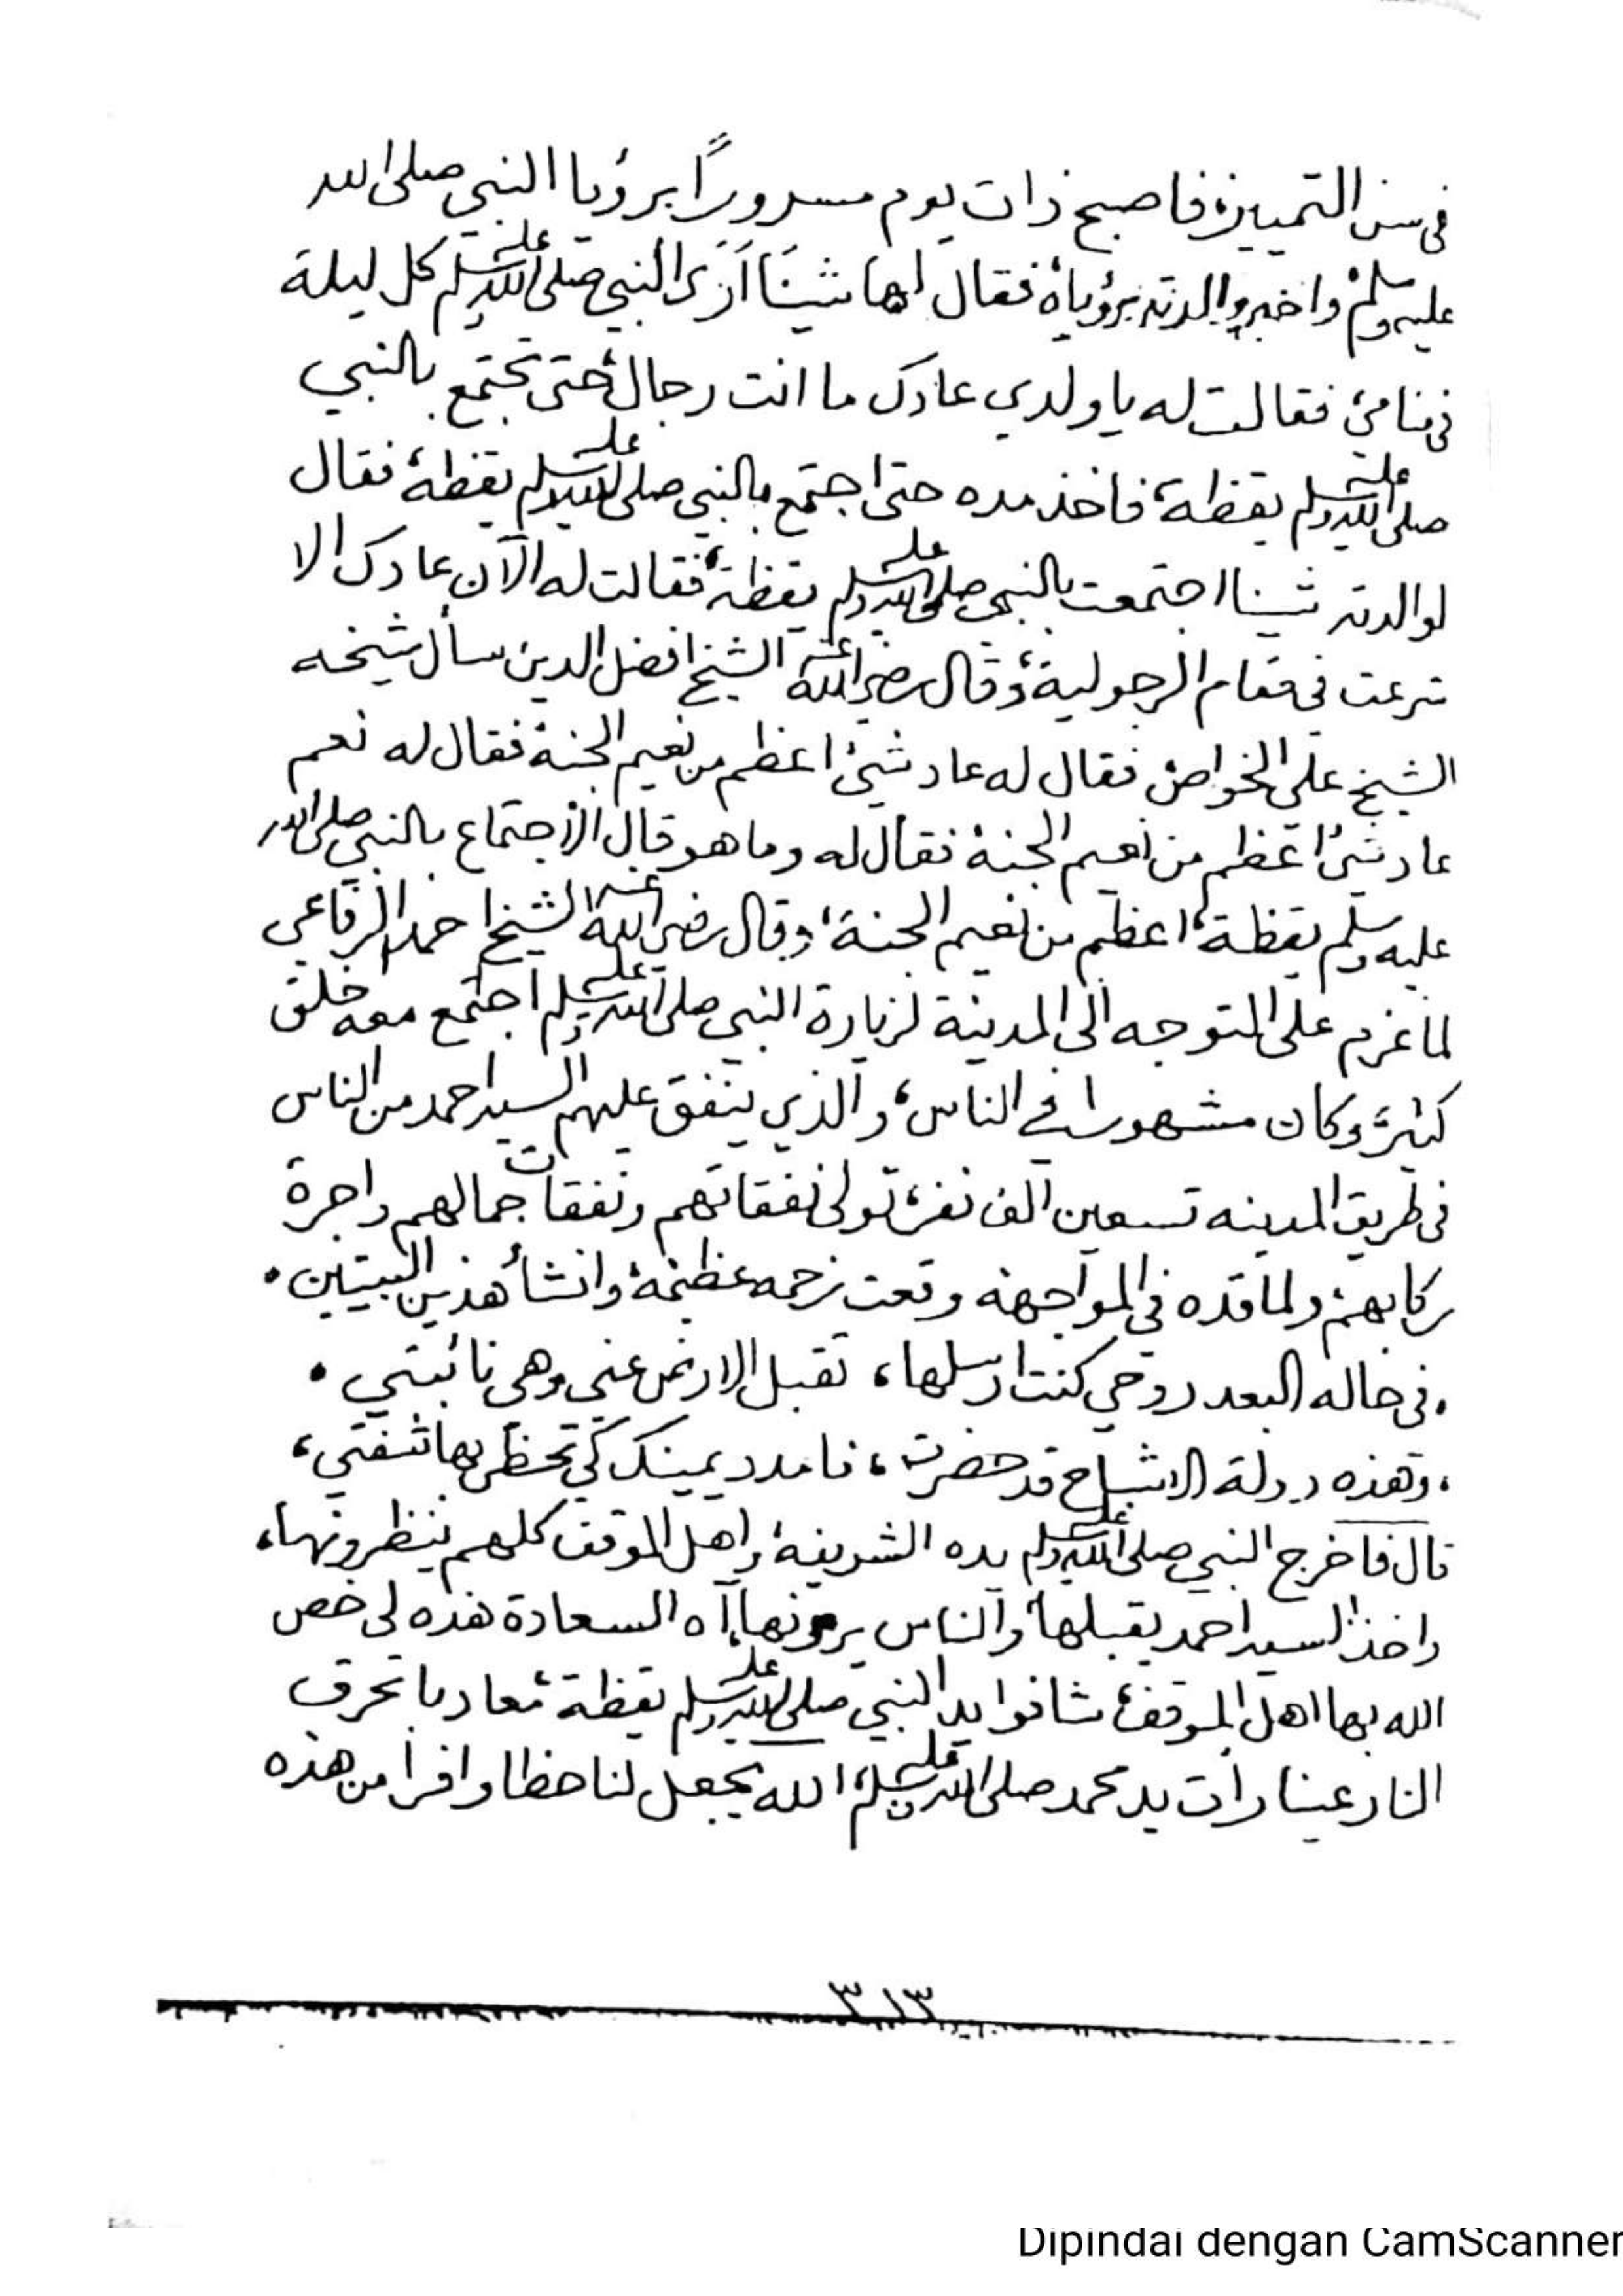 في سن التمييز، فاصبح ذات يوم مسرورًا برؤيا النبي صلى الله
عليه وسلم، واخبر والدته برؤياه، فقال لها شينا أرى النبي صلى الله عليه وسلم كل ليلة
في منامي، فقالت له يا ولدي عادك ما انت رجال، حتى تجتمع بالنبي
صلى الله عليه وسلم يقظة، فاخذ مده حتى اجتمع بالنبي صلى الله عليه وسلم يقظة، فقال
لوالدته شينا اجتمعت بالنبي صلى الله عليه وسلم يقظة، فقالت له الآن عادك الا
ترعت في مقام الرجولية، وقال رضي الله عنه الشيخ افضل الدين سأل شيخه
الشيخ علي الخواص، فقال له عاد شيئ اعظم من نعيم الجنة، فقال له نعم
عاد شيئ اعظم من نعيم الجنة، فقال له وما هو قال الاجتماع بالنبي صلى الله
عليه وسلم يقظة، اعظم من نعيم الجنة، وقال رضي الله عنه الشيخ احمد الرفاعي
لما عزم على التوجه الى المدينة لزيارة النبي صلى الله عليه وسلم اجتمع معه خلق
كثير، وكان مشهورا في الناس، والذي ينفق عليهم السيد احمد من الناس
في طريق المدينه تسعين الف نفر، تولى نفقاتهم ونفقات جمالهم واجرة
ركابهم، ولما قده في المواجهة وقعت زحمه عظيمة، وانشأ هذين البيتين.
.في حاله البعد روحي كنت ارسلها، تقبل الارض عني وهي نائبتي .
،وهذه دولة الاشباح قد حضرت، فامدد يمينك كي تحظى بها شفتي،
قال فاخرج النبي صلى الله عليه وسلم يده الشريفة، واهل الموقف كلهم ينظرونها،
واخذ السيد احمد يقبلها، والناس يرونها، آه السعادة هذه لى خص
الله بها اهل الموقف، شافوا يد النبي صلى الله عليه وسلم يقظة، معاد با تحرق
النار عينا رأت يد محمد صلى الله عليه وسلم، الله يجعل لنا حظا وافرا من هذه
٣١٣
Dipindai dengan CamScanner